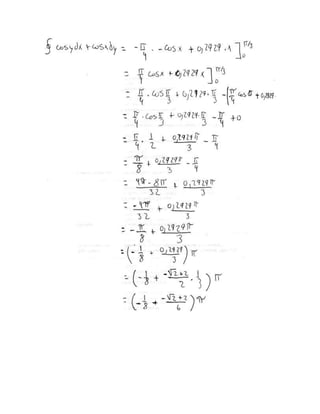 ∮ cosydx + cosxdy = -π/4 · -cosx + 0,2929·1 ]₀^π/3
= π/4 cosx + 0,2929x ]₀^π/3
= π/4 · cos π/3 + 0,2929·π/3 - (π/4 cos
= π/4 · cos π/3 + 0,2929·π/3 - π/4 + 0
= π/4 · 1/2 + 0,2929π/3 - π/4
= π/8 + 0,2929π/3 - π/4
= 4π - 8π/32 + 0,2929π/3
= -4π/32 + 0,2929π/3
= -π/8 + 0,2929π/3
= (-1/8 + 0,2929/3) π
= (-1/8 + -√2+2/2 · 1/3) π
= (-1/8 + -√2+2/6) π